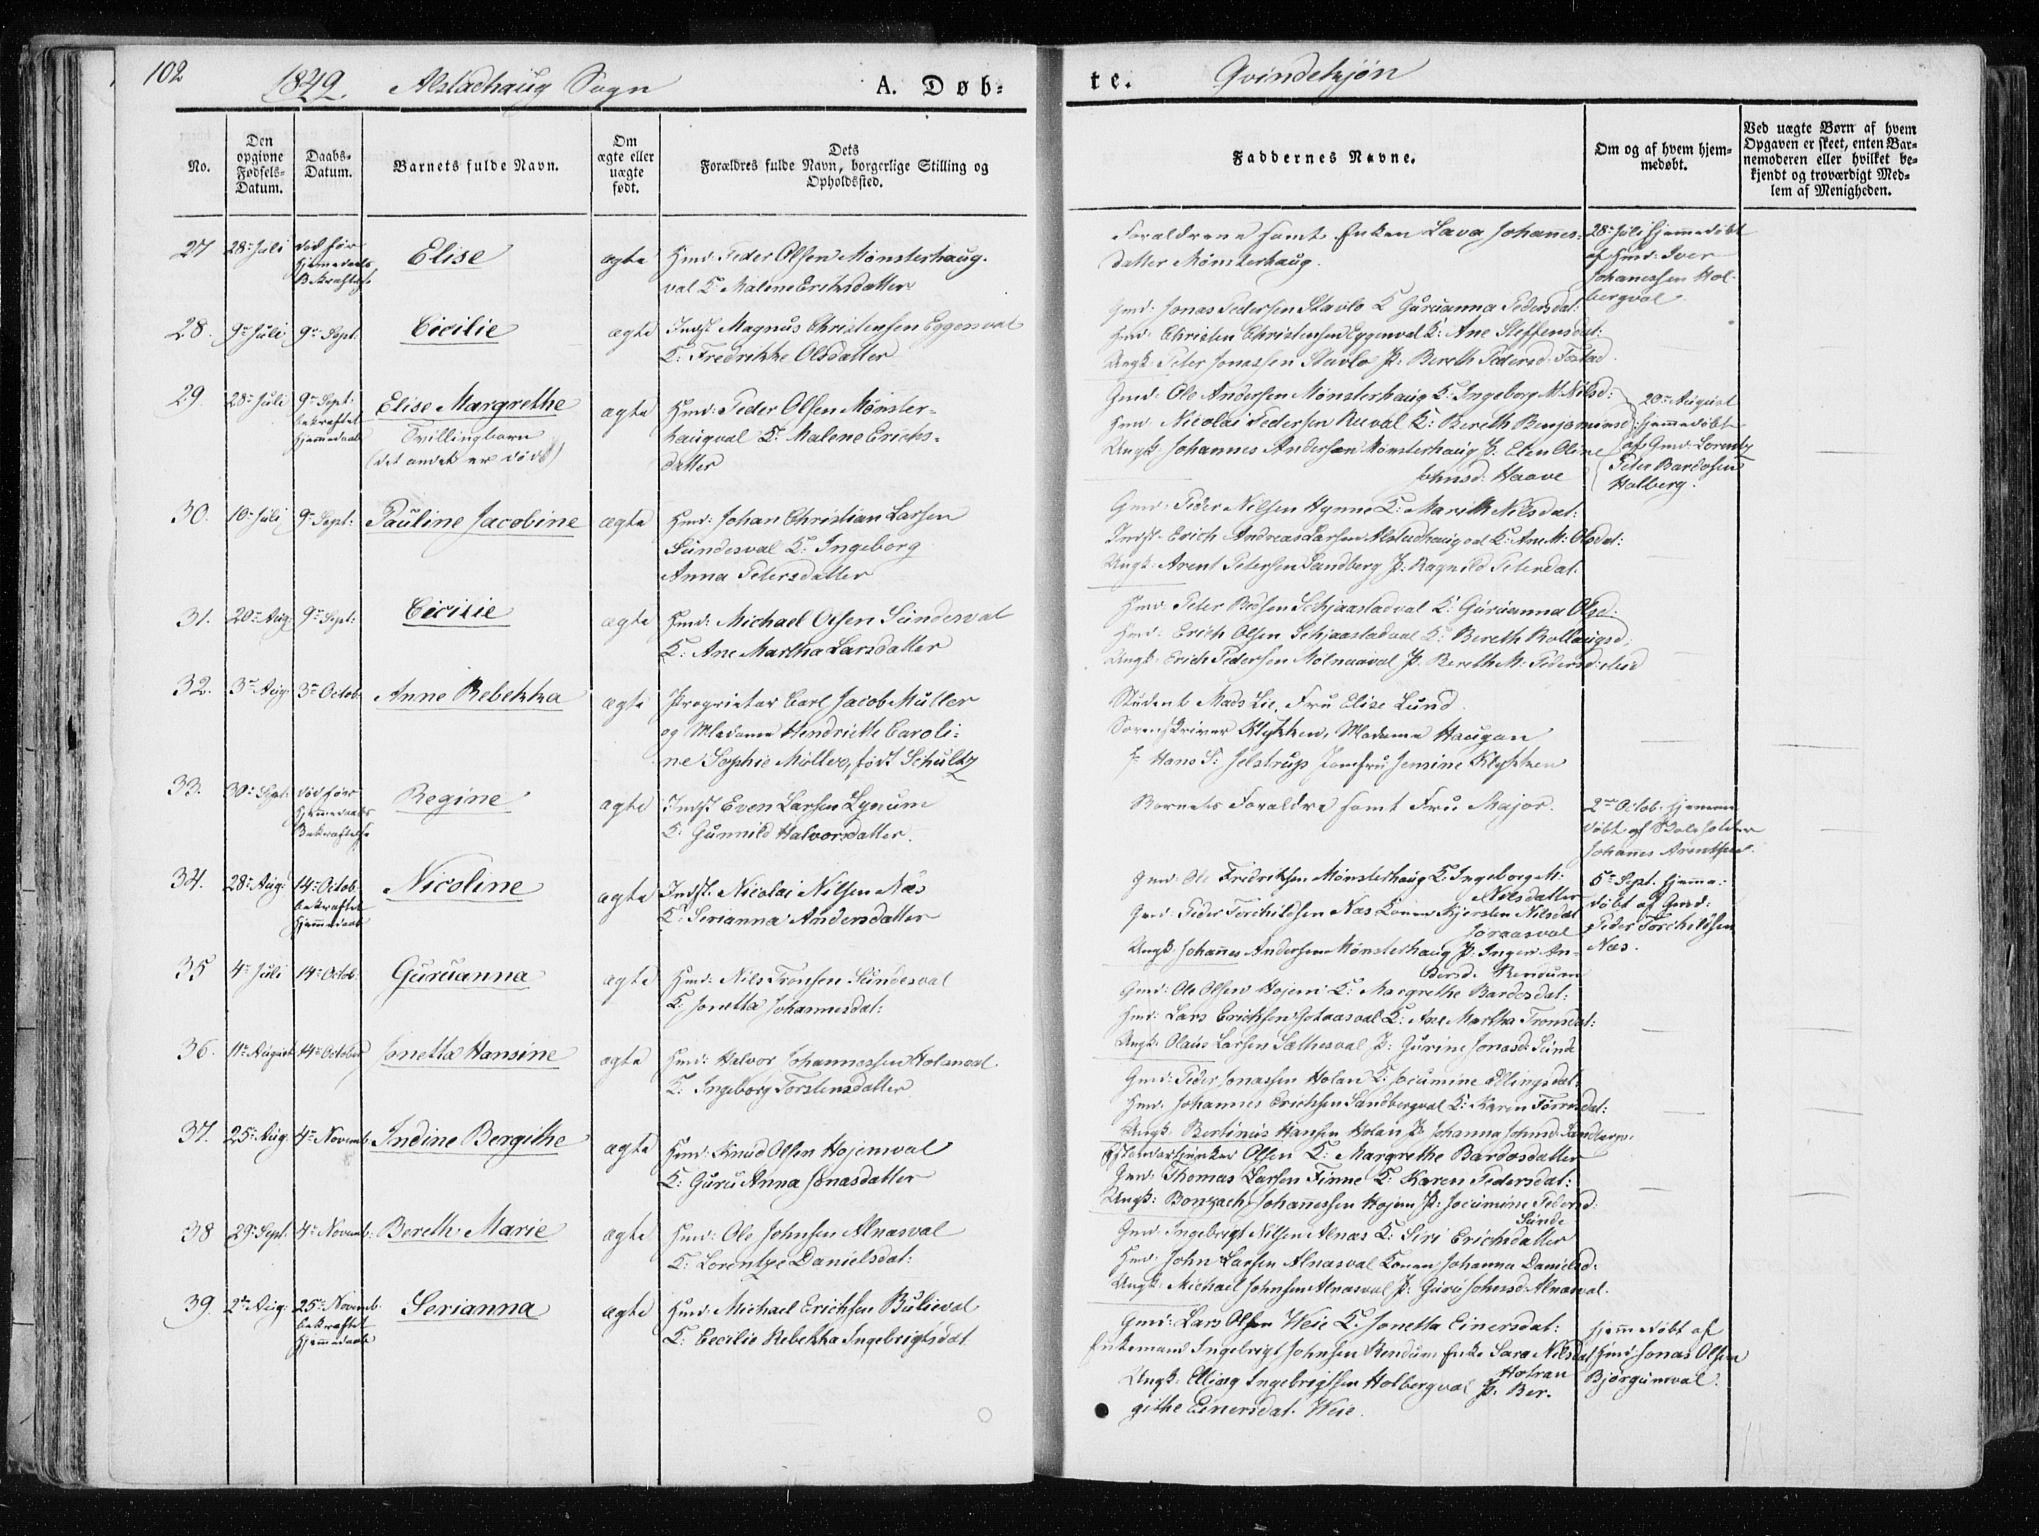 102
1849. Alstadhaug Sogn
A. Døb-
te.
Qvindekjøn
No.
Den opgivne Fødsels-Datum.
Daabs-Datum.
Barnets fulde Navn.
Om ægte eller uægte født.
Dets Forældres fulde Navn, borgerlige Stilling og Opholdssted.
Faddernes Navne.
Om og af hvem hjem-medøbt.
Ved uægte Børn af hvem Opgaven er skeet, enten Bar-nemoderen eller hvilket be-kjendt og troværdigt Med-lem af Menigheden.
27 28de Juli død før Hjemmedaabs Bekræftelse
Elise
ægte
Hmd: Peder Olsen Mønsterhaug-
val K: Malene Erichsdatter
Forældrene samt Enken Lava Johanes-
datter Mønsterhaug.
28de Juli hjemmedøbt
af Hmd: Iver
Johanessen Hol-
bergval
28. 9de Juli 9de Sept.
Cicilie
ægte
Indst Magnus Christensen Eggensval
K: Fredrikke Olsdatter
Gmd: Jonas Pedersen Stavlo K Guruanna Pedersdat:
Hmd: Christen Christensen Eggenval K: Ane Steffensdat:
Ungk: Peter Jonassen Stavlo P: Bereth Pedersd: Fostad
29. 28de Juli 9de Sept: bekræftet Hjemmedaab
Elise Margrethe
Tvillingbarn
(det andet er død)
ægte
Hmd: Peder Olsen Mønster-
haugval K: Malene Erichs-
datter
Gmd: Ole Andersen Mønsterhaug K: Ingeborg M: Nilsd:
Hmd Nicolai Pedersen Ruval K: Bereth Benjaminsd:
Ungk: Johannes Andersen Mønsterhaug P. Elen Oline
Johnsd: Haave
20de August
hjemmedøbt
af Gmd: Lorentz
Peter Bardosen
Halberg.
30. 10de Juli 9de Sept:
Pauline Jacobine
ægte
Hmd: Johan Christian Larsen
Sundesval K: Ingeborg
Anna Petersdatter
Gmd: Peder Nilsen Hynne K: Marith Nilsdat:
Indst: Erich Andreas Larsen Alstadhaugval K: Ane M: Olsdat:
Ungk: Arent Petersen Sandberg P: Ragnild Petersdat.
31. 20de Aug: 9de Sept:
Cicilie
ægte
Hmd: Michael Olsen Sundesval
K: Ane Martha Larsdatter
Hmd: Peter Olsen Schjaastadval K: Guruanna Olsd:
Hmd: Erich Olsen Schjaastadval K: Bereth Rollaugsd:
Ungk: Erich Pedersen Molnaaval P. Bereth M: Pedersd:
32. 3de Aug: 3de Octob:
Anne Rebekka
ægte
Proprietær Carl Jacob Müller
og Madame Hendriette Caroli-
ne Sophie Müller, født Schultz
Student Mads Lie, Fru Elise Lund
Sorenskriver Klykken, Madame Haugan
Hans S: Jelstrup Jomfru Jensine Klykken
33. 30de Sept: død før Hjemmedaabs Bekræftelse
Regine
ægte
Indst Even Larsen Lynum
K: Gunnild Halvorsdatter.
Barnets Forældre samt Fru Major.
2den Octob. hjemme-
døbt af Skoleholder
Johanes Arentsen.
34. 28de Aug: 14de Octob: bekræftet Hjemmedaab
Nicoline
ægte
Indst: Nicolai Nilsen Næs
K: Serianna Andersdatter
Gmd: Ole Fredriksen Mønsterhaug K: Ingeborg M:
Nilsdatter
Gmd: Peder Torchildsen Næs Konen Kjersten Nilsdat
Joraasval
Ungk Johannes Andersen Mønsterhaug P: Inger An-
dersd. Rendum
5te Sept. hjemme-
døbt af Gmd:
Peder Torchildsen
Næs.
35 4de Juli 14de Octob:
Guruanna
ægte
Hmd: Nils Tronsen Sundesval
K: Jonetta Johannesdat:
Gmd: Ole Olsen Hojem K: Margrethe Bardosdat:
Hmd: Lars Erichsen K: Ane Martha Tronsdat:
Ungk: Olaus Larsen Sæthesval P: Gurine Jonasd: Sunde
36. 11te August 14de October
Jonetta Hansine
ægte
Hmd: Halvor Johannessen Holanval.
K: Ingeborg Torstensdatter
Gmd: Peder Jonassen Holan K: Jocumine Ellingsdat:
Hmd: Johannes Erichsen Sandbergval K: Karen Torrisdat:
Ungk: Bertinus Hansen Holan P: Johanna Johnsd:
37. 25de Aug: 4de Novemb:
Indine Bergithe
ægte
Hmd: Knud Olsen Hojemval
K: Guru Anna Jonasdatter
Olsen K: Margrethe Bardosdatter
Gmd: Thomas Larsen Finne K: Karen Pedersdat:
Ungk: Bonsach Johannessen Hojem P: Jocumine Pedersd:
Sunde
38 29de Sept: 4de Novemb:
Bereth Marie
ægte
Hmd: Ole Johnsen Alnasval
K: Lorentze Danielsdat:
Gmd: Ingebrigt Nilsen Alnæs K: Siri Erichsdatter
Hmd: John Larsen Alnasval Konen Johanna Danielsd:
Ungk: Michael Johnsen Alnasval P: Guru Johnsd: Alnasval.
39. 2den Aug: 25de Novemb: bekræftet Hjemmedaab
Serianna
ægte
Hmd: Michael Erichsen Bulieval
K: Cecilie Rebekka Ingebrigtsdat
Gmd: Lars Olsen Weie K: Jonetta Einersdat:
Enkemand Ingebrigt Johnsen Rendum Enke Sara Nilsdat
Hotran
Ungk: Elling Ingebrigtsen Holbergval P: Ber-
githe Einersdat. Weie.
Hjemmedøbt af
Hmd: Jonas Olsen
Bjørgumval.